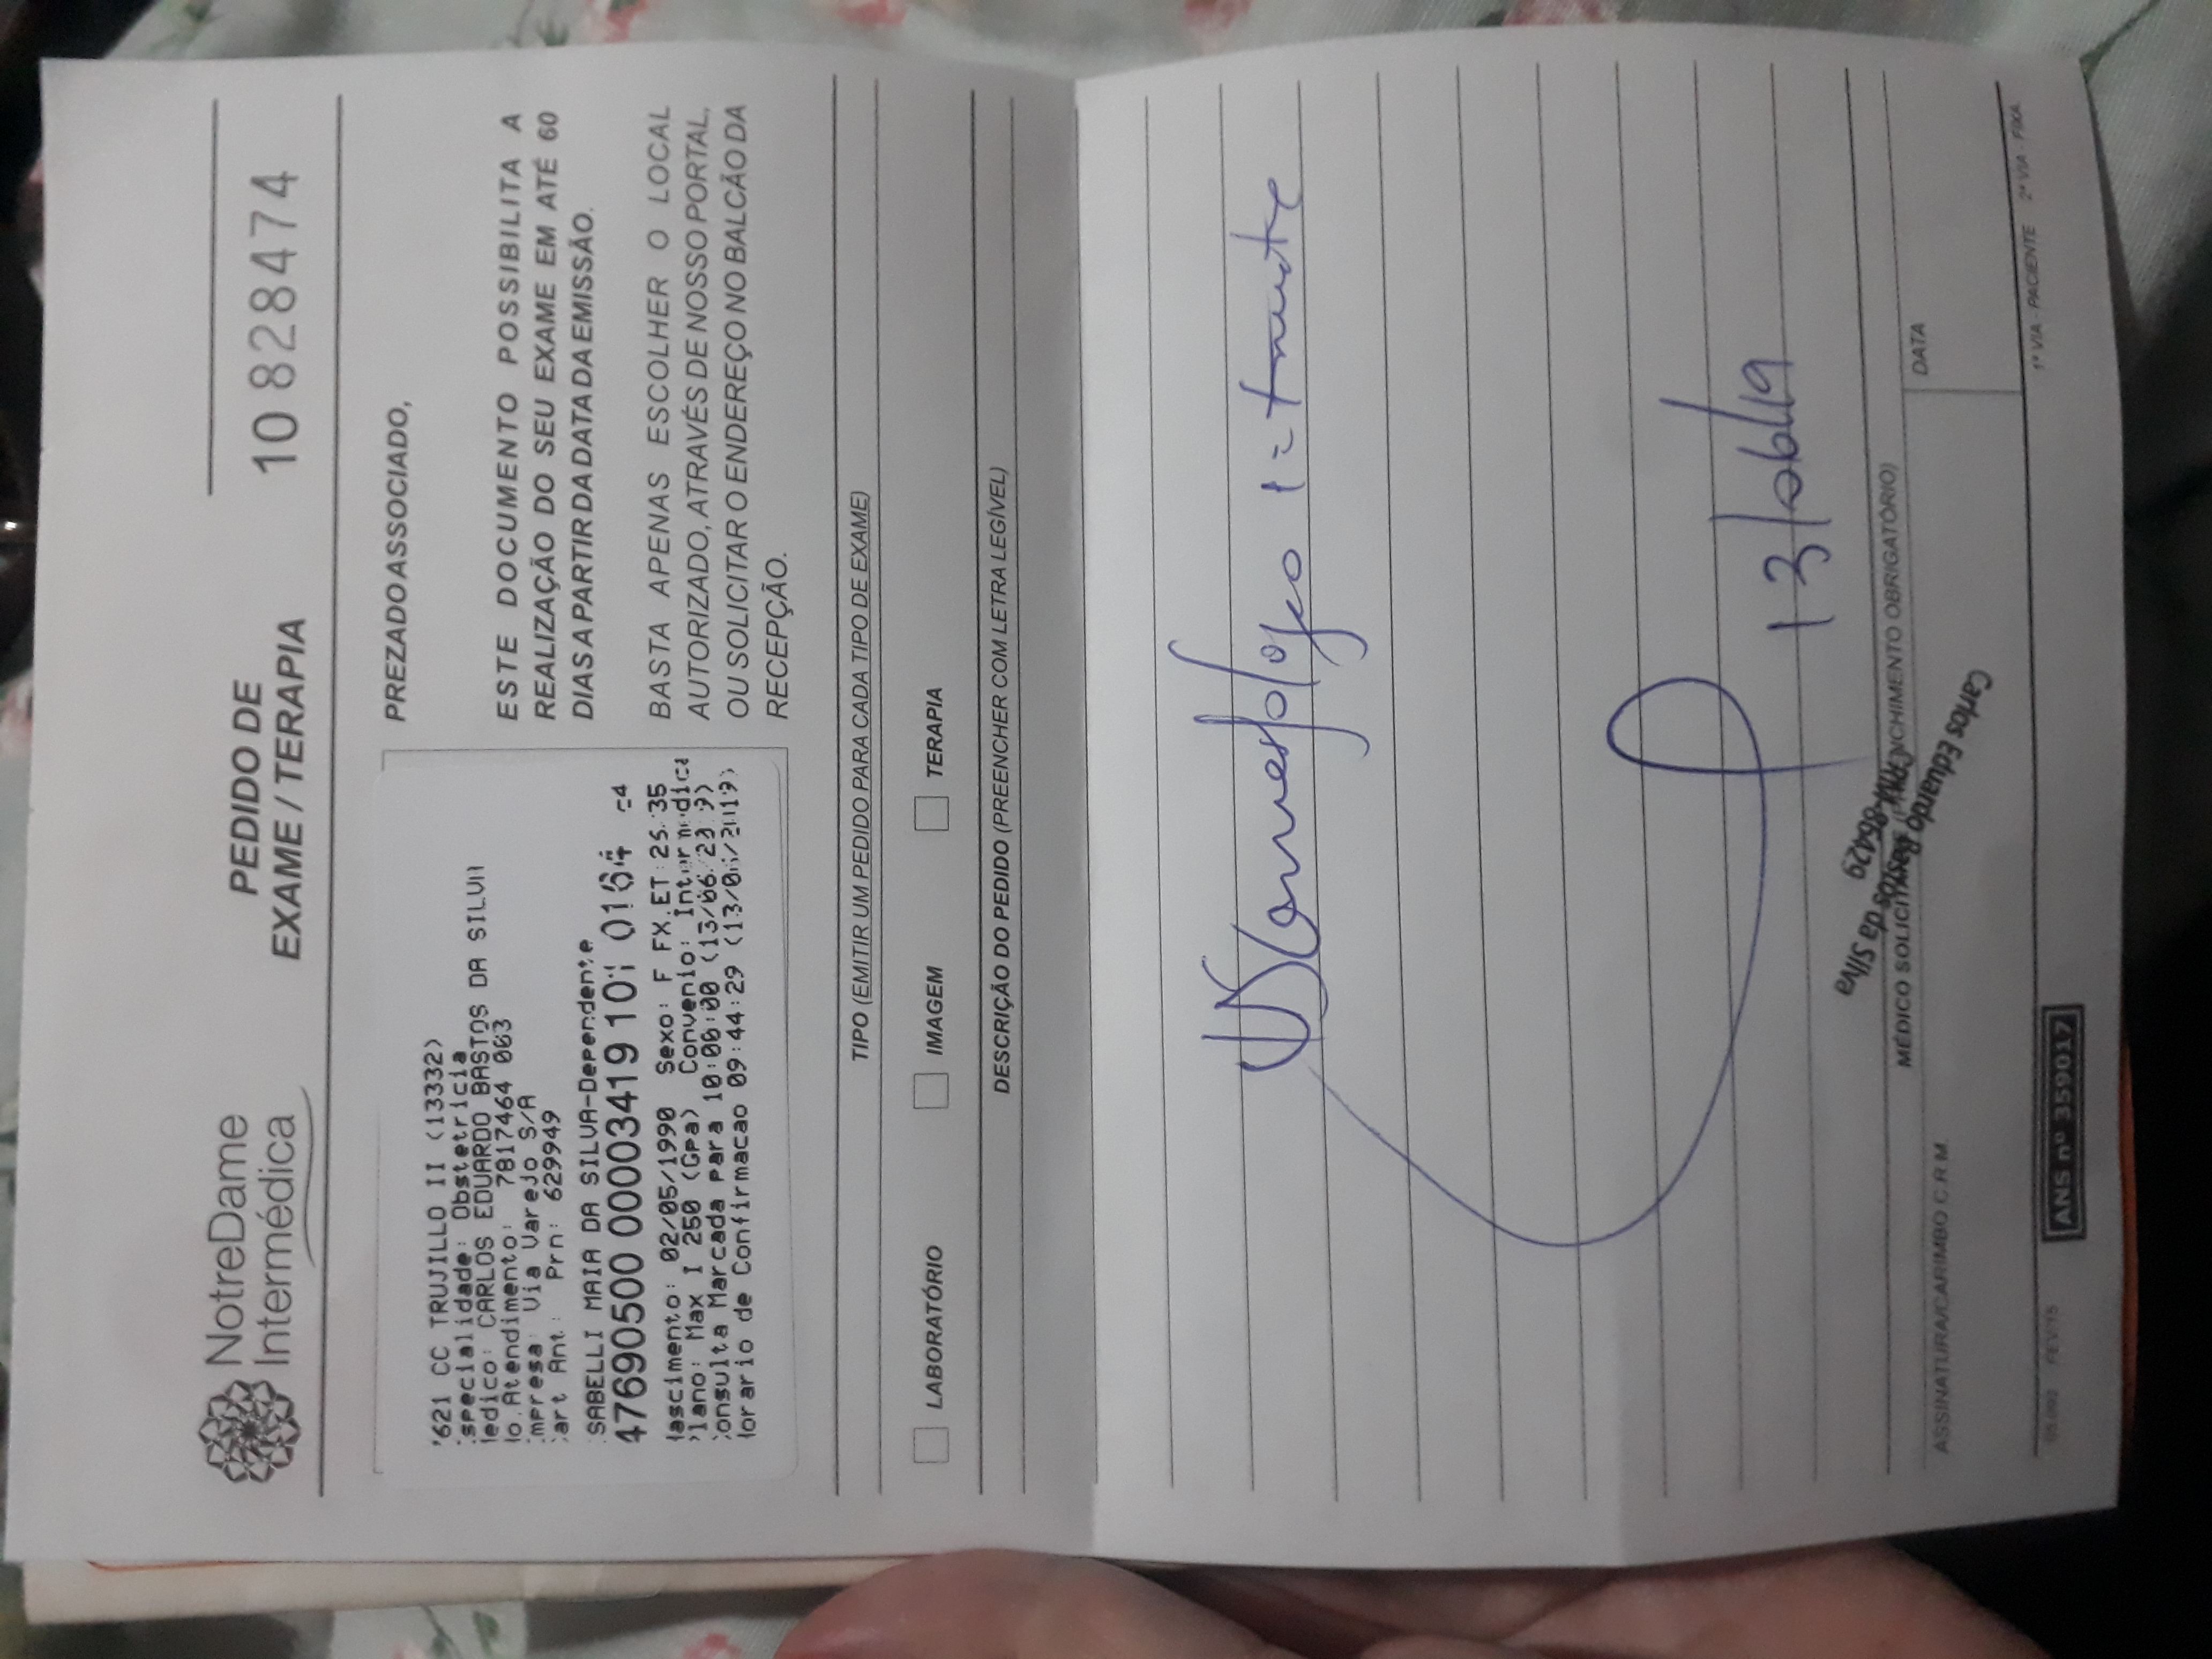 NotreDame
Intermédica
PEDIDO DE
EXAME / TERAPIA
10 828474
621 CC TRUJILLO II (13332)
specialidade: Obstetricia
edico: CARLOS EDUARDO BASTOS DA SILVA
o.Atendimento: 7817464 003
mpresa: Via Varejo S/A
art Ant.: Prn: 629949
SABELLI MAIA DA SILVA-Dependente
47690500 00003419 101 0164
ascimento: 02/05/1990 Sexo: F FX.ET: 35
lano: Max I 250 (Gpa) Convenio: Intermedica
onsulta Marcada para 10:00:00 (13/06/2019)
orario de Confirmacao 09:44:29 (13/06/2019)
PREZADO ASSOCIADO,
ESTE DOCUMENTO POSSIBILITA A
REALIZAÇÃO DO SEU EXAME EM ATÉ 60
DIAS A PARTIR DA DATA DA EMISSÃO.
BASTA APENAS ESCOLHER O LOCAL
AUTORIZADO, ATRAVÉS DE NOSSO PORTAL,
OU SOLICITAR O ENDEREÇO NO BALCÃO DA
RECEPÇÃO.
TIPO (EMITIR UM PEDIDO PARA CADA TIPO DE EXAME)
LABORATÓRIO IMAGEM TERAPIA
DESCRIÇÃO DO PEDIDO (PREENCHER COM LETRA LEGÍVEL)
US
13/06/19
Carlos Eduardo Bastos da Silva
CRM-86429
MÉDICO SOLICITANTE (PREENCHIMENTO OBRIGATÓRIO)
ASSINATURA/CARIMBO C.R.M.
DATA
1ª VIA - PACIENTE 2ª VIA - FIXA
FEV/15
ANS nº 359017